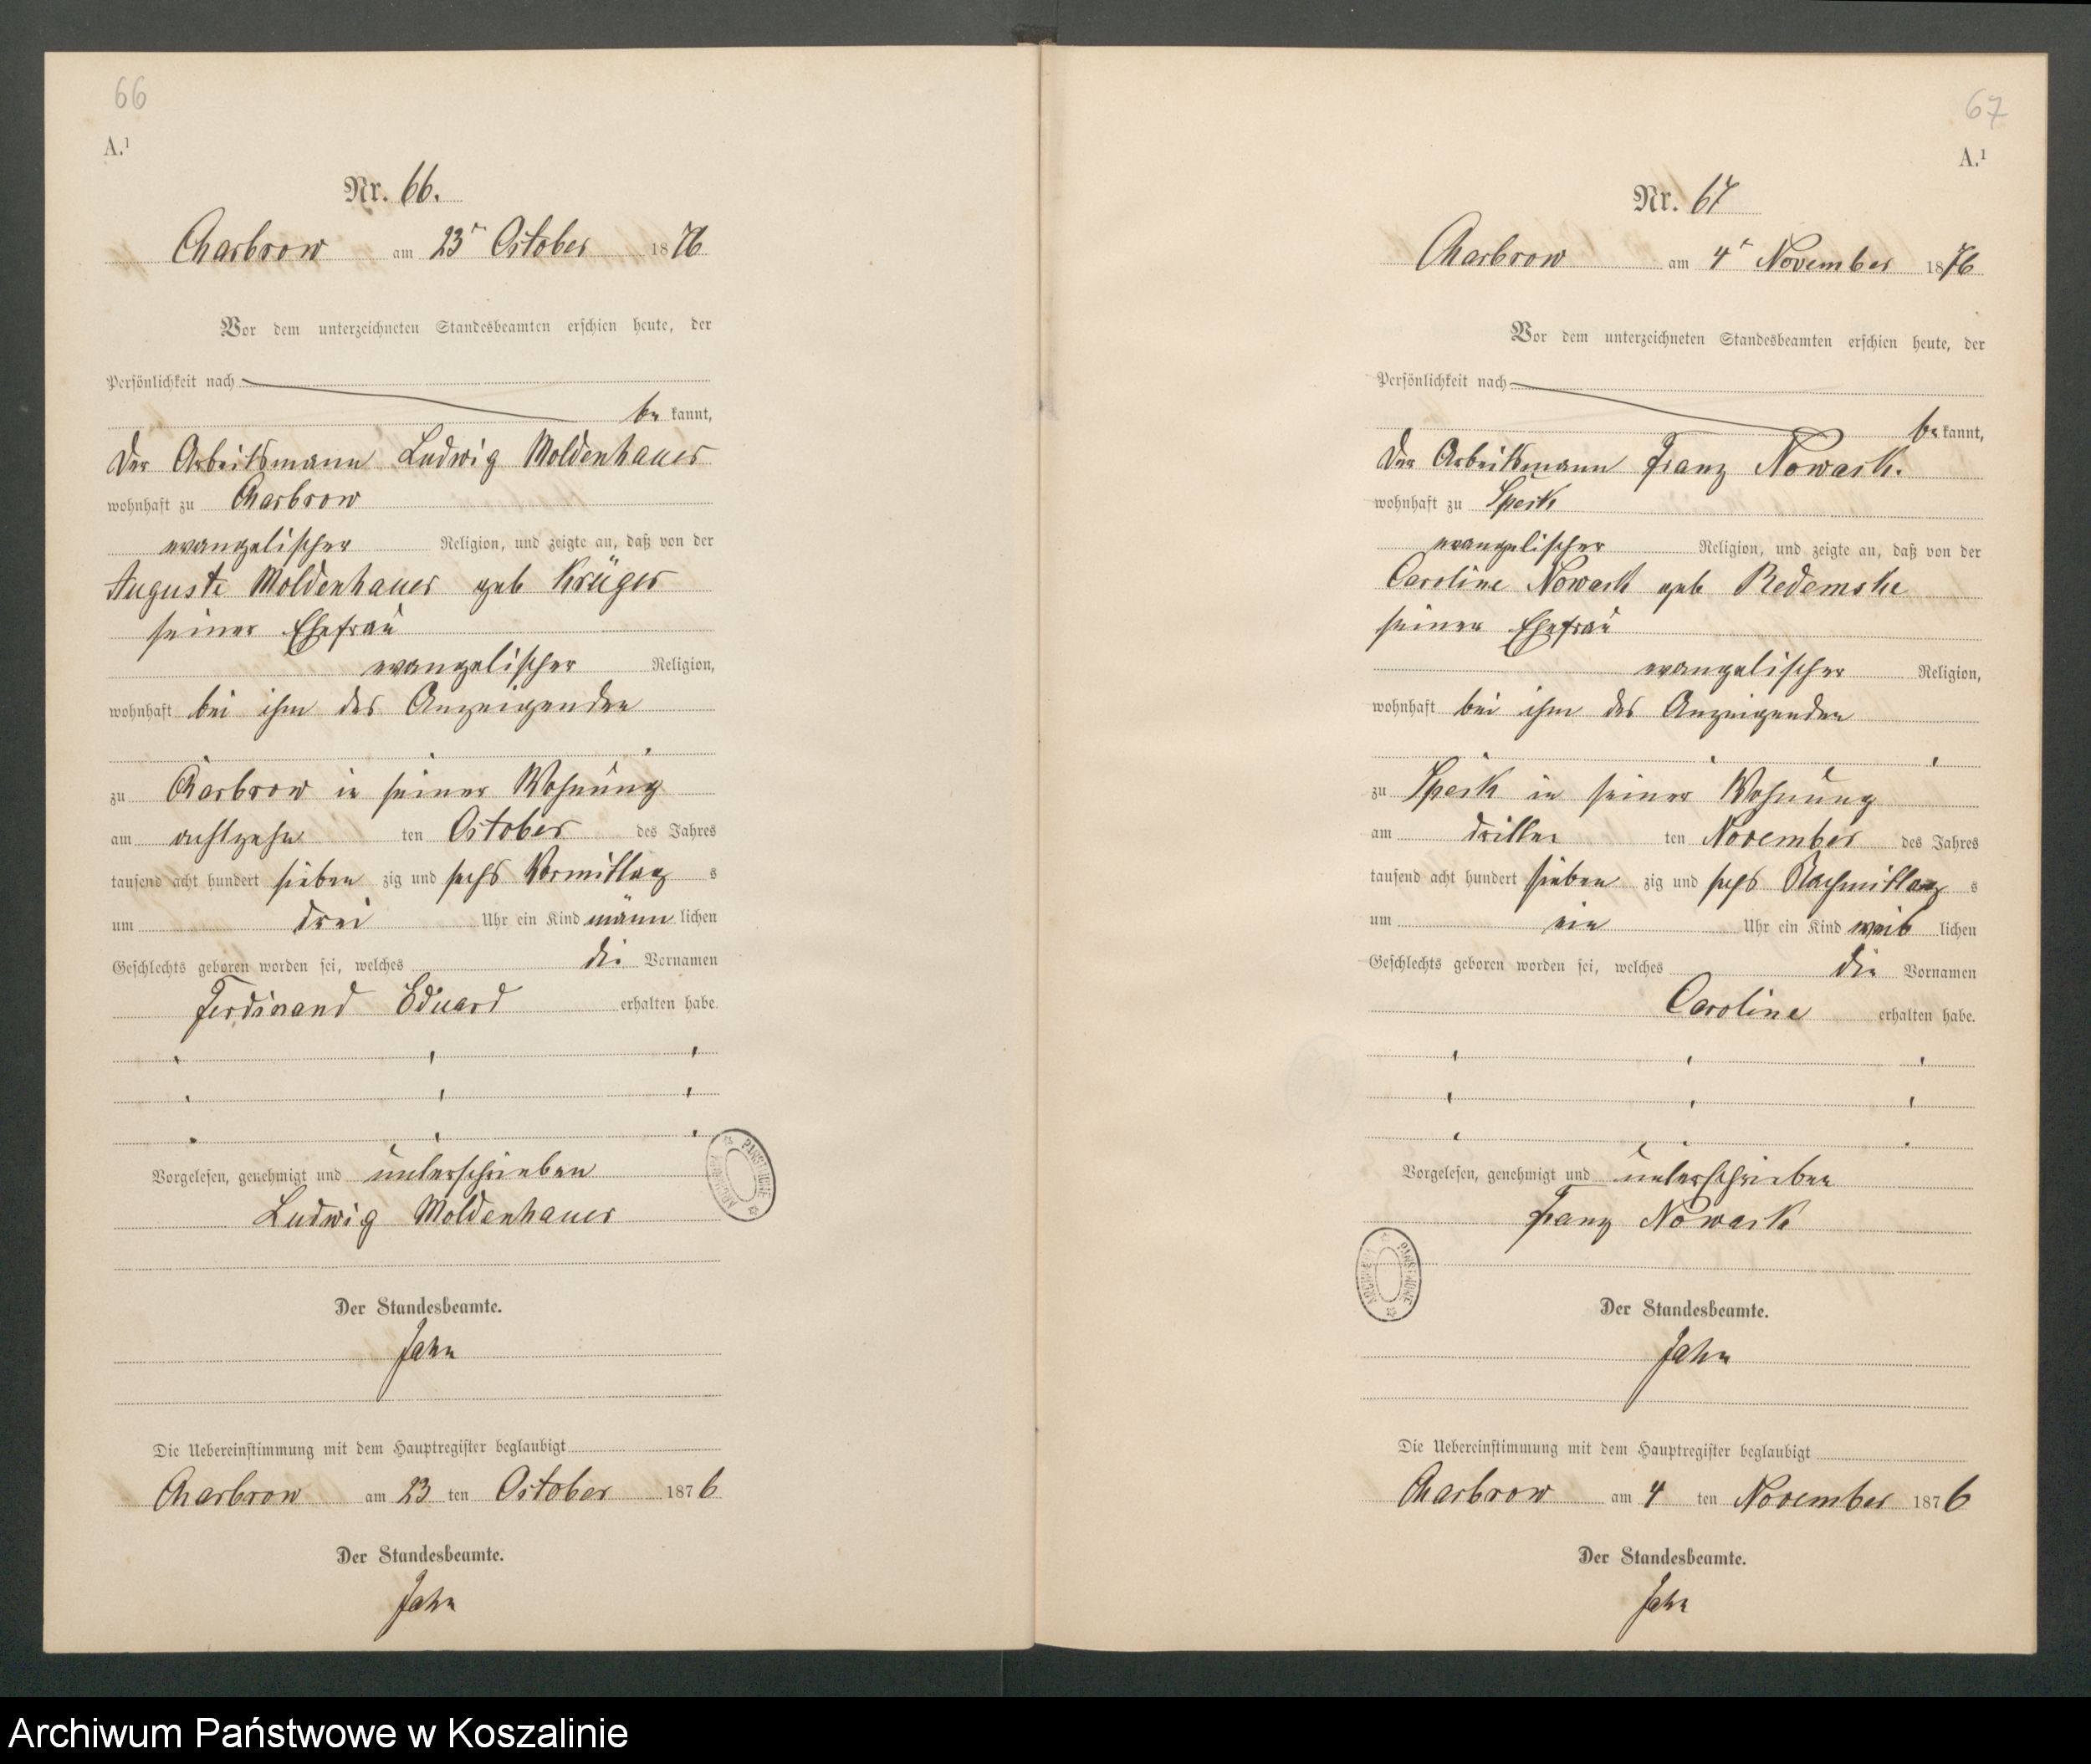 66
A.¹
Nr. 66.
Charbrow am 23ᵗ October 1876
Vor dem unterzeichneten Standesbeamten erschien heute, der
Persönlichkeit nach
be kannt,
der Arbeitsmann Ludwig Moldenhauer
wohnhaft zu Charbrow
evangelischer Religion, und zeigte an, daß von der
Auguste Moldenhauer geb Krüger
seiner Ehefrau
evangelischer Religion,
wohnhaft bei ihm des Anzeigenden
zu Charbrow in seiner Wohnung
am achtzehn ten October des Jahres
tausend acht hundert sieben zig und sechs Vormittag s
um drei Uhr ein Kind männ lichen
Geschlechts geboren worden sei, welches die Vornamen
Ferdinand Eduard erhalten habe.
Vorgelesen, genehmigt und unterschrieben
Ludwig Moldenhauer
Der Standesbeamte.
Jahn
Die Uebereinstimmung mit dem Hauptregister beglaubigt
Charbrow am 23 ten October 1876
Der Standesbeamte.
Jahn
ARCHIWUM PAŃSTWOWE
67
A.¹
Nr. 67
Charbrow am 4ᵗ November 1876
Vor dem unterzeichneten Standesbeamten erschien heute, der
Persönlichkeit nach
be kannt,
der Arbeitsmann Franz Nowack.
wohnhaft zu Speck
evangelischer Religion, und zeigte an, daß von der
Caroline Nowack geb Redemske
seiner Ehefrau
evangelischer Religion,
wohnhaft bei ihm des Anzeigenden
zu Speck in seiner Wohnung
am dritten ten November des Jahres
tausend acht hundert sieben zig und sechs Nachmittag s
um ein Uhr ein Kind weib lichen
Geschlechts geboren worden sei, welches die Vornamen
Caroline erhalten habe.
Vorgelesen, genehmigt und unterschrieben
Franz Nowack
ARCHIWUM PAŃSTWOWE
Der Standesbeamte.
Jahn
Die Uebereinstimmung mit dem Hauptregister beglaubigt
Charbrow am 4 ten November 1876
Der Standesbeamte.
Jahn
Archiwum Państwowe w Koszalinie